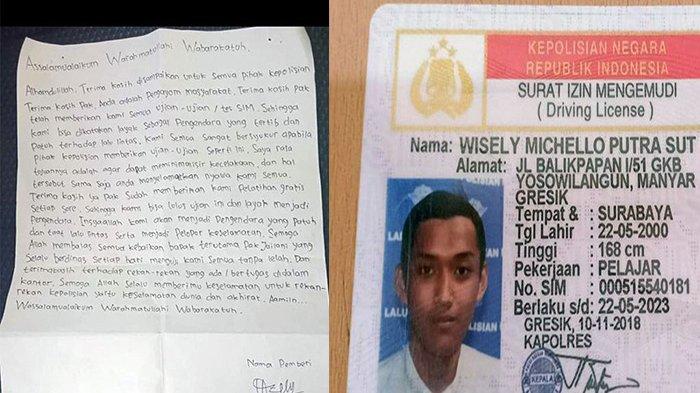 Assalamualaikum Warahmatullahi Wabarakatuh.
Alhamdulillah. Terima kasih disampaikan untuk semua pihak kepolisian
Terima kasih Pak, Anda adalah Pengayom masyarakat. Terima kasih Pak
telah memberikan kami semua ujian - ujian / tes SIM. Sehingga
kami bisa dikatakan layak sebagai Pengendara yang tertib dan
Patuh terhadap lalu lintas. Kami semua sangat bersyukur apabila
pihak kepolisian memberikan ujian-ujian seperti ini. Saya rasa
tujuannya adalah agar dapat meminimalisir kecelakaan, dan hal
tersebut sama saja anda menyelamatkan nyawa kami semua.
Terima kasih ya Pak sudah memberikan kami Pelatihan gratis
setiap sore. Sehingga kami bisa lolos ujian ini dan layak menjadi
Pengendara. Insyaallah kami akan menjadi Pengendara yang Patuh
dan taat lalu lintas serta menjadi Pelopor keselamatan. Semoga
Allah membalas semua kebaikan bapak terutama Pak Jailani yang
selalu berdinas setiap hari menguji kami semua tanpa lelah. Dan
terimakasih terhadap rekan-rekan yang ada / bertugas didalam
kantor. Semoga Allah selalu memberimu keselamatan untuk rekan-
rekan kepolisian yaitu keselamatan dunia dan akhirat. Aamiin...
Wassalamualaikum Warahmatullahi Wabarakatuh.
Nama Pemberi
KEPOLISIAN NEGARA
REPUBLIK INDONESIA
SURAT IZIN MENGEMUDI
( Driving License )
Nama: WISELY MICHELLO PUTRA SUT
Alamat: JL BALIKPAPAN I/51 GKB
YOSOWILANGUN, MANYAR
GRESIK
Tempat & : SURABAYA
Tgl Lahir : 22-05-2000
Tinggi : 168 cm
Pekerjaan : PELAJAR
No. SIM : 000515540181
Berlaku s/d: 22-05-2023
GRESIK, 10-11-2018
KAPOLRES
KEPALA